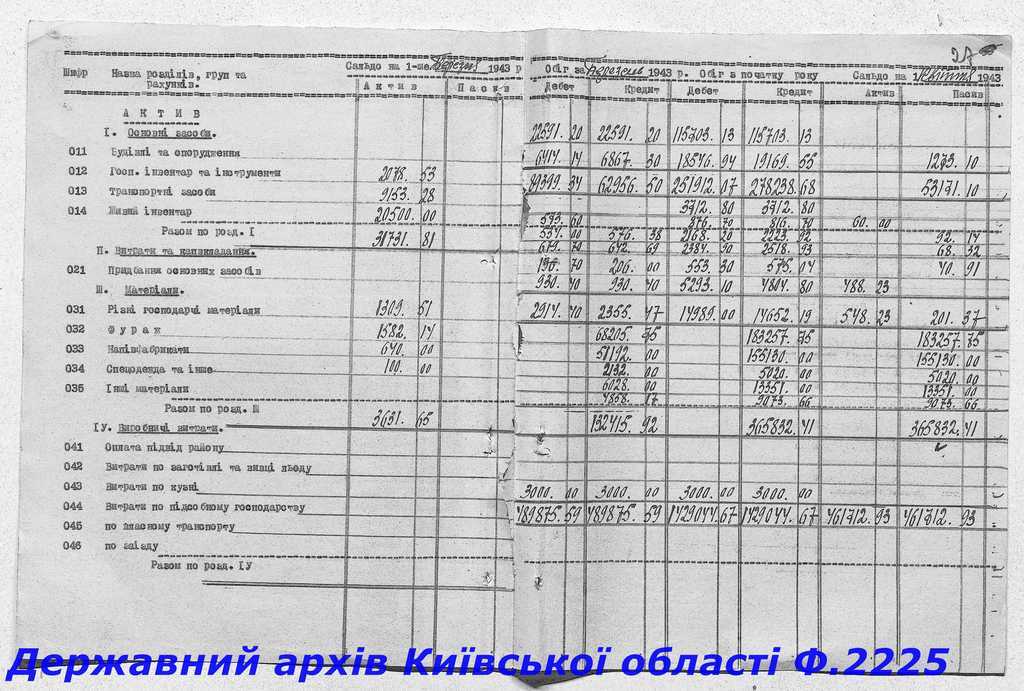 Шифр Назва розділів, груп та рахунків. Сальдо на 1-ше березня 1943 р Обіг за березень 1943 р. Обіг з початку року Сальдо на 1943
Актив Пасив Дебет Кредит Дебет Кредит Актив Пасив
АКТИВ
I. Основні засоби. 22591. 20 22591. 20 115703. 13 115703. 13
011 Будівлі та спорудження 6414. 14 6867. 30 18546. 94 19169. 55 1273. 10
012 Госп. інвентар та інструменти 2078. 53
013 Транспортні засоби 9153. 28 62956. 50 251912. 07 278238. 68 53171. 10
014 Живий інвентар 20500. 00 3712. 80 3712. 80
Разом по розд. I 31731. 81
II. Витрати та капвкладання.
021 Придбання основних засобів 206. 00 553. 30 575. 04 40. 91
Ш. Матеріали. 930. 40 930. 40 5293. 10 4804. 80 488. 23
031 Різні господарчі матеріали 1309. 51 2914. 40 2355. 47 14989. 00 14652. 19 548. 23 201. 37
032 Фураж 1582. 14 68205. 75 183257. 75 183257. 75
033 Напівфабрикати 640. 00 51192. 00 155130. 00 155130. 00
034 Спецодежда та інше 100. 00 2132. 00 5020. 00 5020. 00
035 Інші матеріали 6028. 00 13351. 00 13351. 00
4858. 17 9073. 66 9073. 66
Разом по розд. Ш 3631. 65 132415. 92 365832. 41 365832. 41
IУ. Виробничі витрати.
041 Оплата підвід району
042 Витрати по заготівлі та вивці льоду
043 Витрати по кузні 3000. 00 3000. 00 3000. 00 3000. 00
044 Витрати по підсобному господарству 489875. 59 489875. 59 1429044. 67 1429044. 67 461712. 93 461712. 93
045 по власному транспорту
046 по заїзду
Разом по розд. IУ
Державний архів Київської області Ф.2225